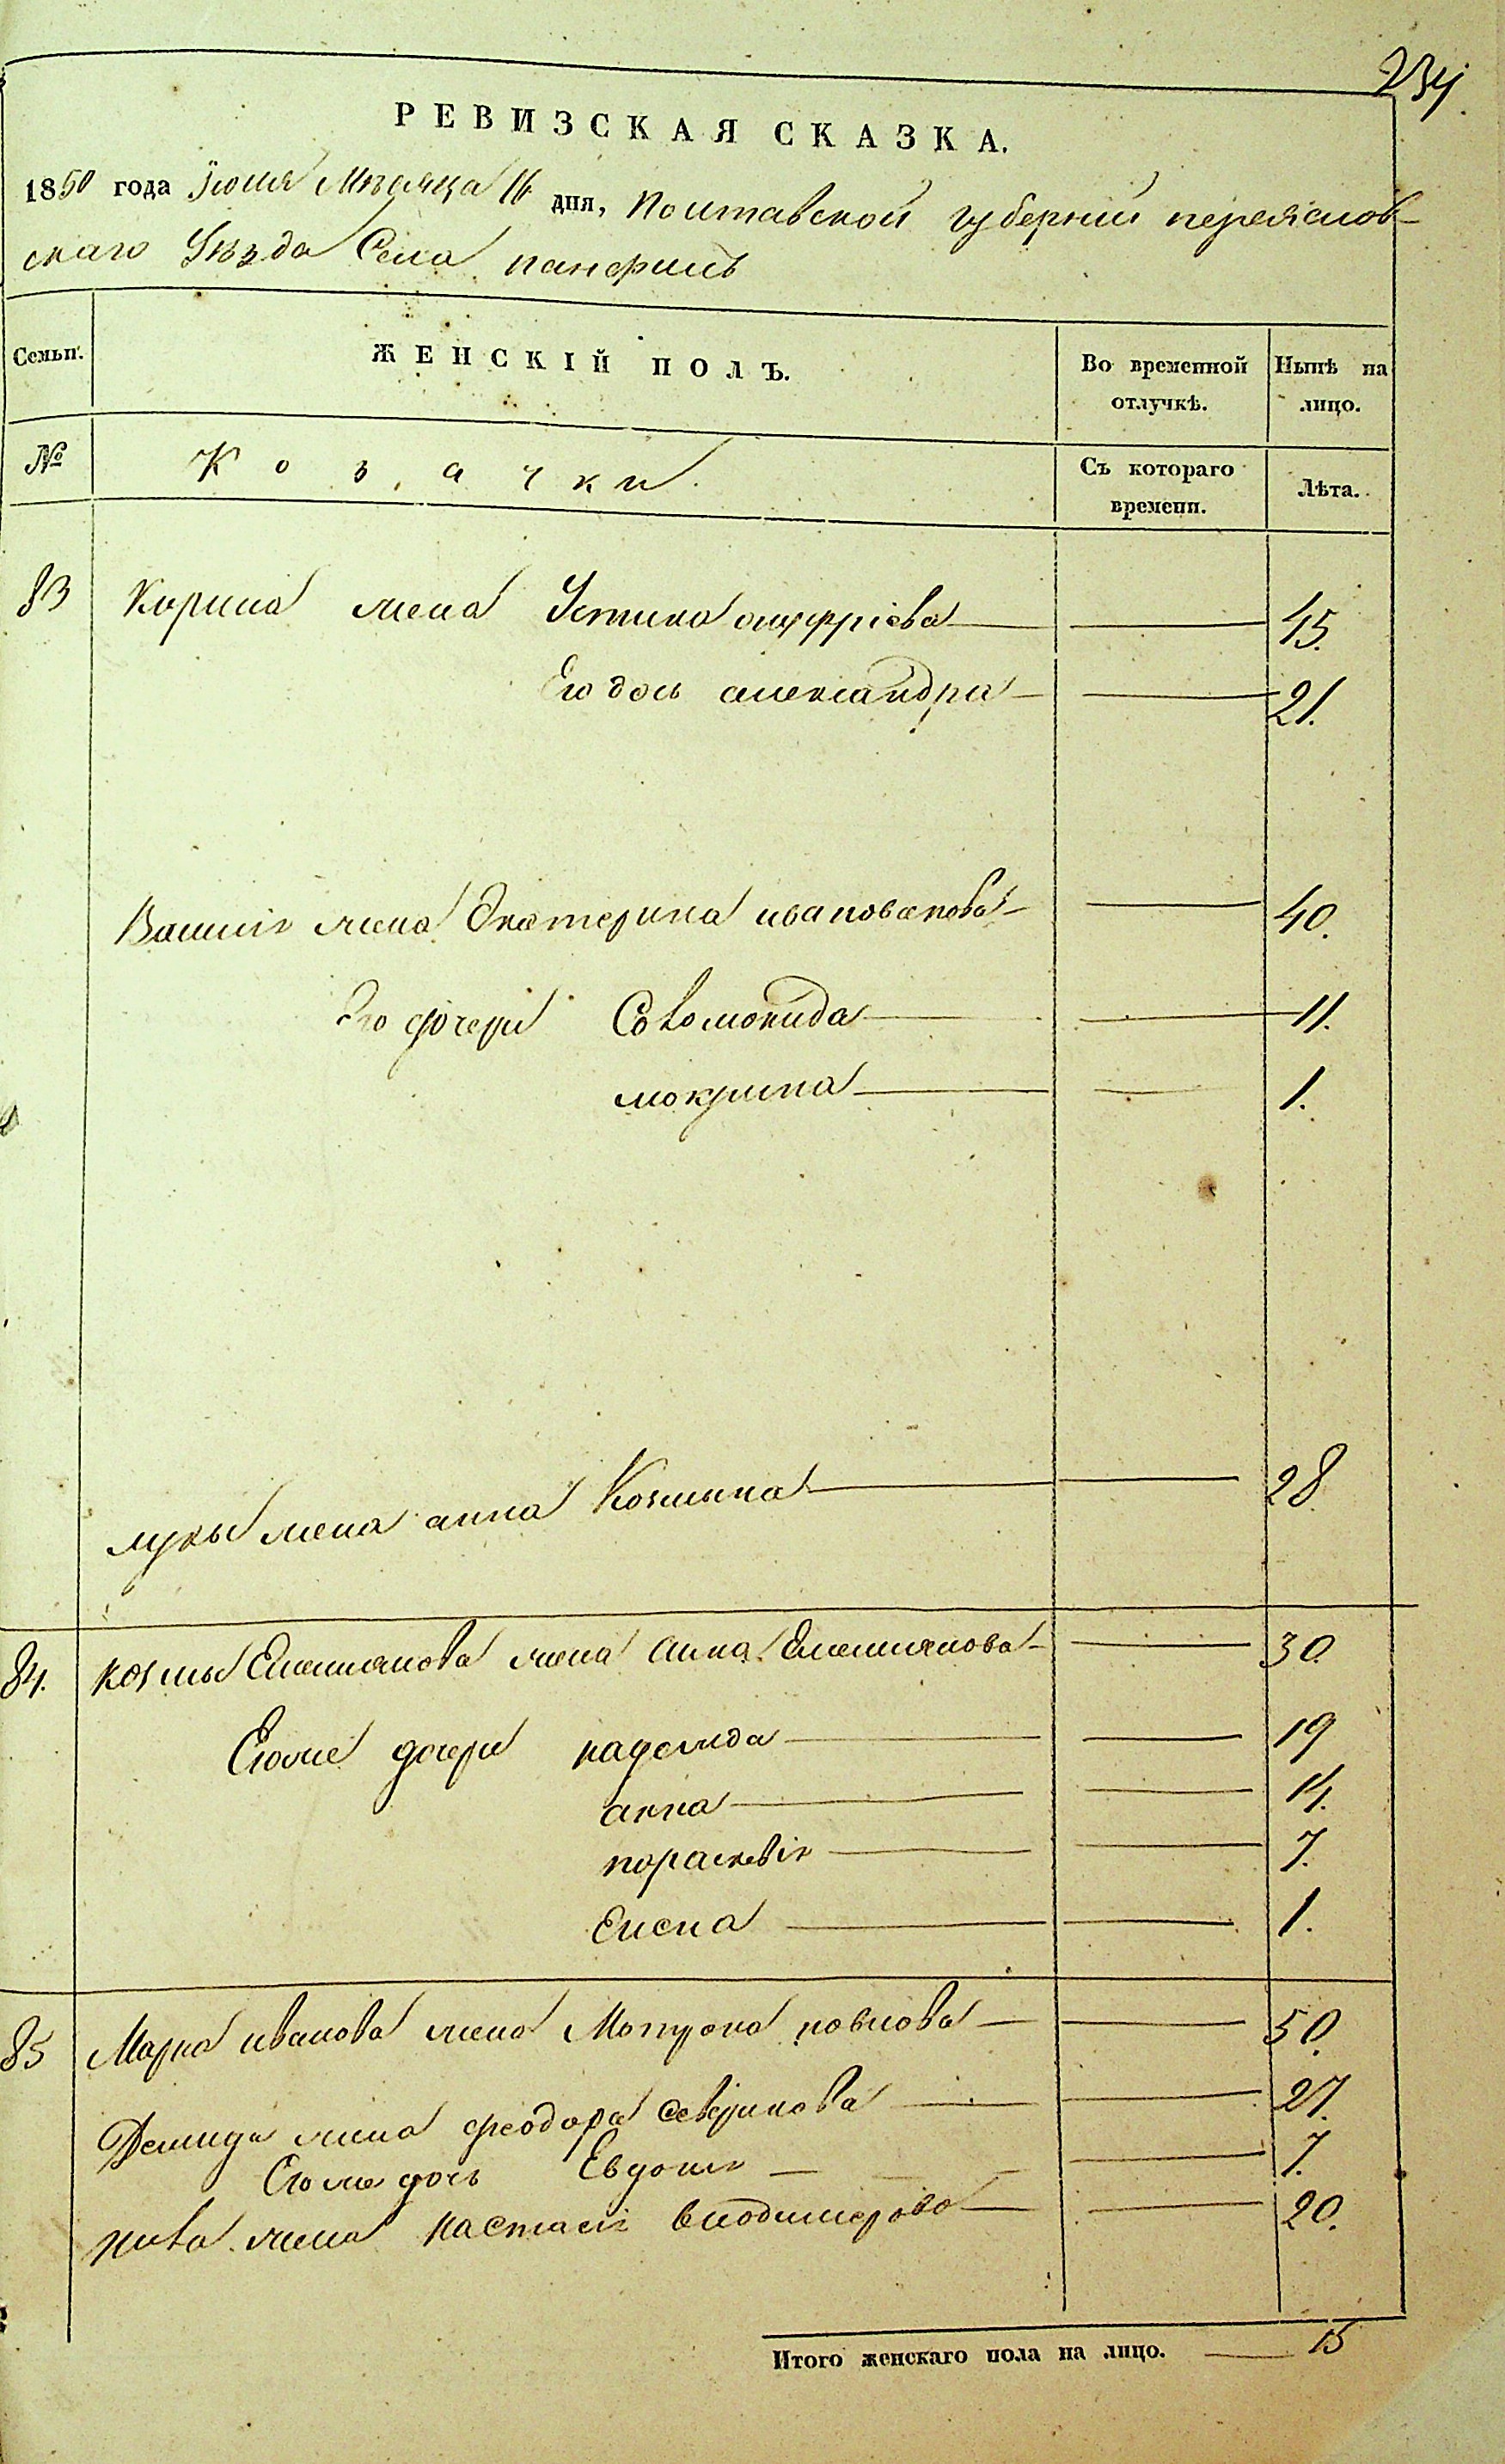 234
РЕВИЗСКАЯ СКАЗКА.
1850 года Июня Мѣсяца 16 дня, Полтавской губерніи переяслов-
скаго Уѣзда Села панфилъ
Семьи. ЖЕНСКІЙ ПОЛЪ. Во временной отлучкѣ. Нынѣ на лицо.
№ Козачки Съ котораго времени. Лѣта.
83 Карпа жена Устина ануфріева 45.
Его дочь александра 21.
Василія жена Екатерина иванованова 40.
Его дочери Соломонида 11.
мокрина 1.
луки жена анна Козмина 28.
84. козмы Емелианова жена Анна Емелианова 30
Егоже дочери надежда 19
анна 14.
пораскевія 7.
Елена 1.
85 Марка иванова жена Мотрона павлова 50.
Демида жена феодора Северинова 27.
Егоже дочь Евдокія 7.
жена настасія владимерова 20.
Итого женскаго пола на лицо. 15